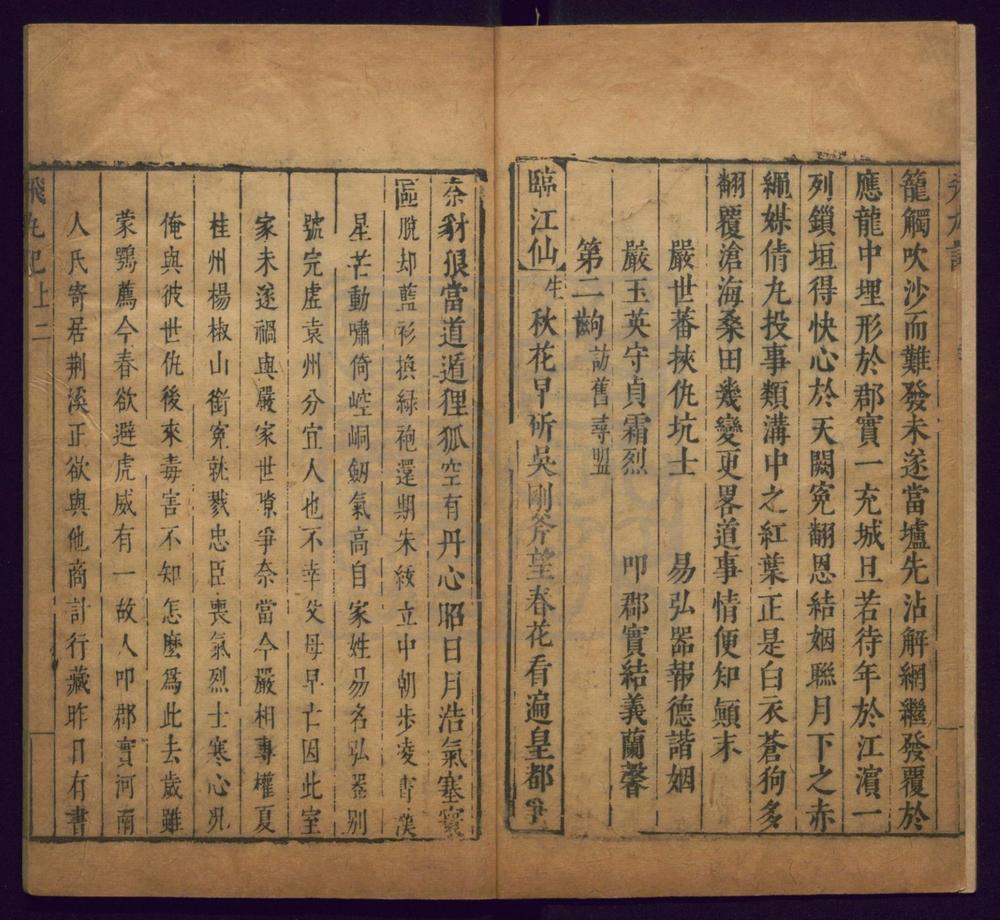 籠觸吹沙而難發未遂當壚先沾解網繼發覆於
應龍中埋形於郡實一充城旦若待年於江濱一
列鎖垣得快心於天闕寃翻恩結姻聯月下之赤
繩媒倩九投事類溝中之紅葉正是白衣蒼狗多
翻覆滄海桑田幾變更畧道事情便知顛末
嚴世蕃挾仇坑士 易弘器報德諧姻
嚴玉英守貞霜烈 叩郡實結義蘭馨
第二齣 訪舊尋盟
臨江仙 生 秋花早斫吳剛斧望春花看遍皇都爭
奈豺狼當道遁狸狐空有丹心昭日月浩氣塞寰
區脫却藍衫換緑袍還期朱紱立中朝步凌霄漢
星芒動嘯倚崆峒劒氣高自家姓易名弘器別
號完虛袁州分宜人也不幸父母早亡因此室
家未遂禍與嚴家世隙爭奈當今嚴相專權夏
桂州楊椒山銜寃就戮忠臣喪氣烈士寒心况
俺與彼世仇後來毒害不知怎麼爲此去歲雖
蒙鶚薦今春欲避虎威有一故人叩郡實河南
人氏寄居荆溪正欲與他商計行藏昨日有書
飛丸記 上 二